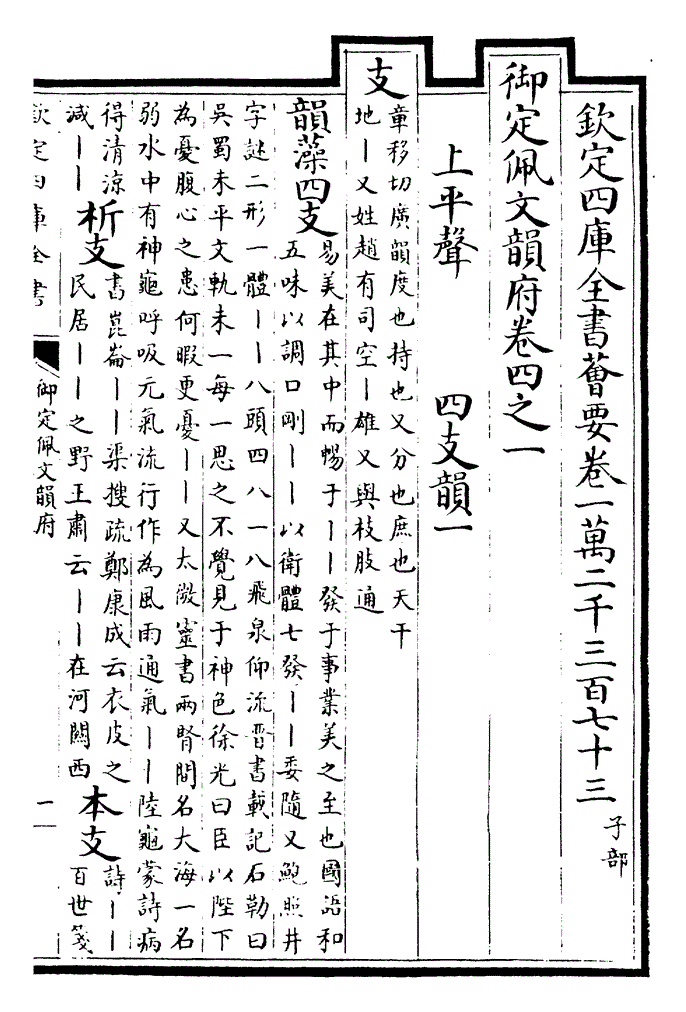 欽定四庫全書薈要卷一萬二千三百七十三
子部
御定佩文韻府卷四之一
上平聲　四支韻一
支
章移切廣韻度也持也又分也庶也天干
地丨又姓趙有司空丨雄又與枝肢通
韻藻四支
易美在其中而暢于丨丨發于事業美之至也國語和
五味以調口剛丨丨以衛體七發丨丨委隨又鮑照井
字謎二形一體丨丨八頭四八一八飛泉仰流晋書載記石勒曰
吳蜀未平文軌未一每一思之不覺見于神色徐光曰臣以陛下
為憂腹心之患何暇更憂丨丨又太微靈書兩腎間名大海一名
弱水中有神龜呼吸元氣流行作為風雨通氣丨丨陸龜蒙詩病
得清涼
減丨丨
析支
書崑崙丨丨渠搜疏鄭康成云衣皮之
民居丨丨之野王肅云丨丨在河關西
本支
詩丨丨
百世箋
欽定四庫全書
御定佩文韻府
一